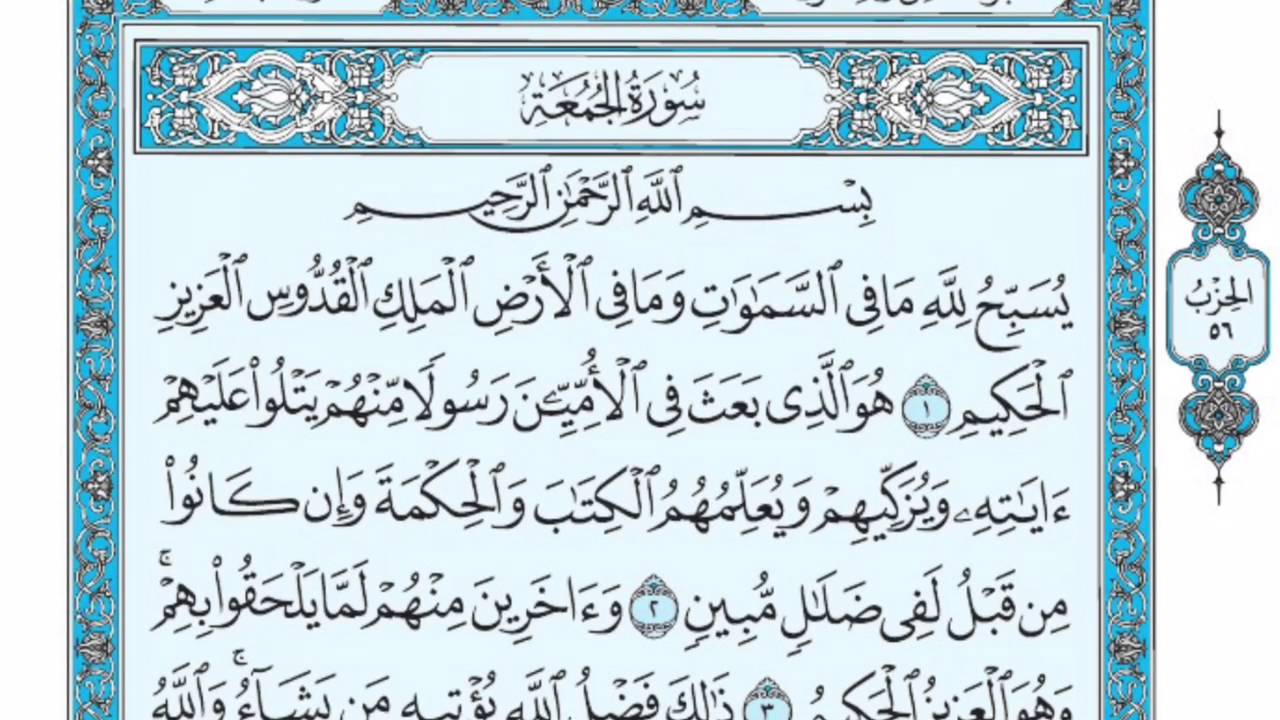 سُورَةُ الجُمُعَةِ
بِسْمِ ٱللَّهِ ٱلرَّحْمَٰنِ ٱلرَّحِيمِ
يُسَبِّحُ لِلَّهِ مَا فِي ٱلسَّمَٰوَٰتِ وَمَا فِي ٱلْأَرْضِ ٱلْمَلِكِ ٱلْقُدُّوسِ ٱلْعَزِيزِ
ٱلْحَكِيمِ ١ هُوَ ٱلَّذِي بَعَثَ فِي ٱلْأُمِّيِّـۧنَ رَسُولًا مِّنْهُمْ يَتْلُوا۟ عَلَيْهِمْ
ءَايَٰتِهِۦ وَيُزَكِّيهِمْ وَيُعَلِّمُهُمُ ٱلْكِتَٰبَ وَٱلْحِكْمَةَ وَإِن كَانُوا۟
مِن قَبْلُ لَفِي ضَلَٰلٍ مُّبِينٍ ٢ وَءَاخَرِينَ مِنْهُمْ لَمَّا يَلْحَقُوا۟ بِهِمْۚ
وَهُوَ ٱلْعَزِيزُ ٱلْحَكِيمُ ٣ ذَٰلِكَ فَضْلُ ٱللَّهِ يُؤْتِيهِ مَن يَشَآءُۚ وَٱللَّهُ
الحِزْبُ
٥٦